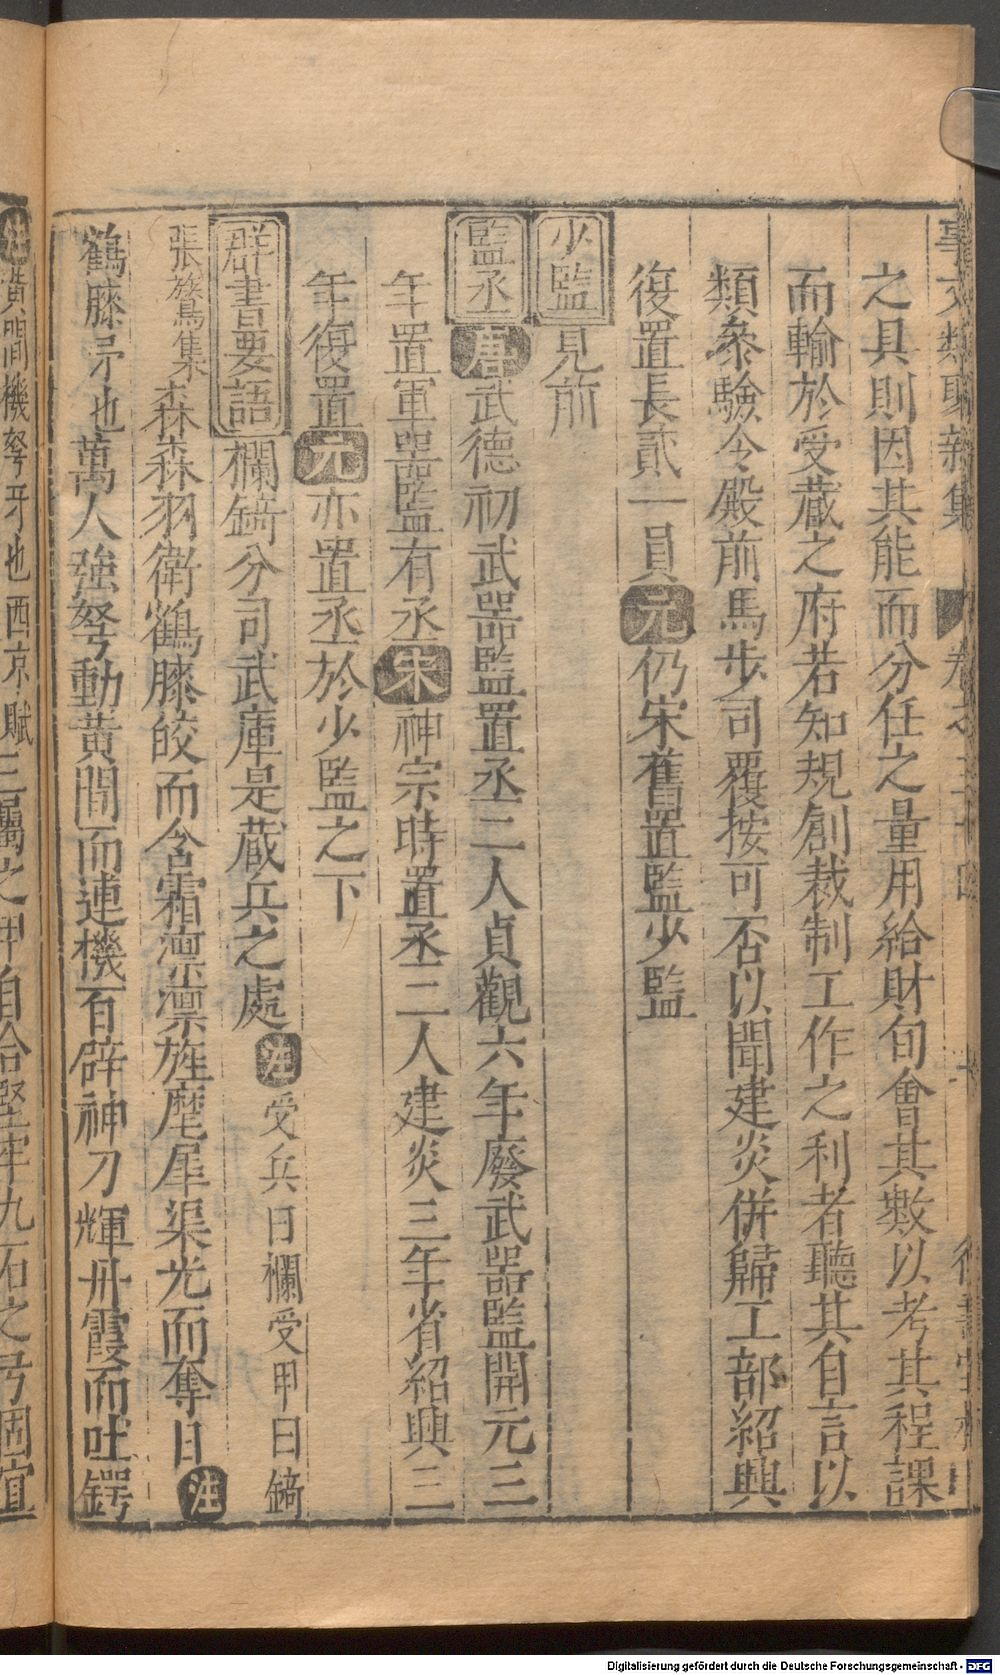 事文類聚新集 卷之三十四
之具則因其能而分任之量用給財旬會其數以考其程課
而輸於受藏之府若知規創裁制工作之利者聽其自言以
類叅驗令殿前馬步司覆按可否以聞建炎併歸工部紹興
復置長貳一員元仍宋舊置監少監
少監見前
監丞唐武德初武器監置丞二人貞觀六年廢武器監開元三
年置軍器監有丞宋神宗時置丞二人建炎三年省紹興三
年復置元亦置丞於少監之下
群書要語欄錡分司武庫是藏兵之處注受兵曰欄受甲曰錡
張鷟集森森羽衛鶴膝皎而含霜凛凛旌麾犀渠光而奪日注
鶴膝矛也萬人強弩動黄間而連機百辟神刀輝丹霞而吐鍔
注黄間機弩牙也西京賦三屬之甲自合堅牢九石之弓固宜
Digitalisierung gefördert durch die Deutsche Forschungsgemeinschaft - DFG